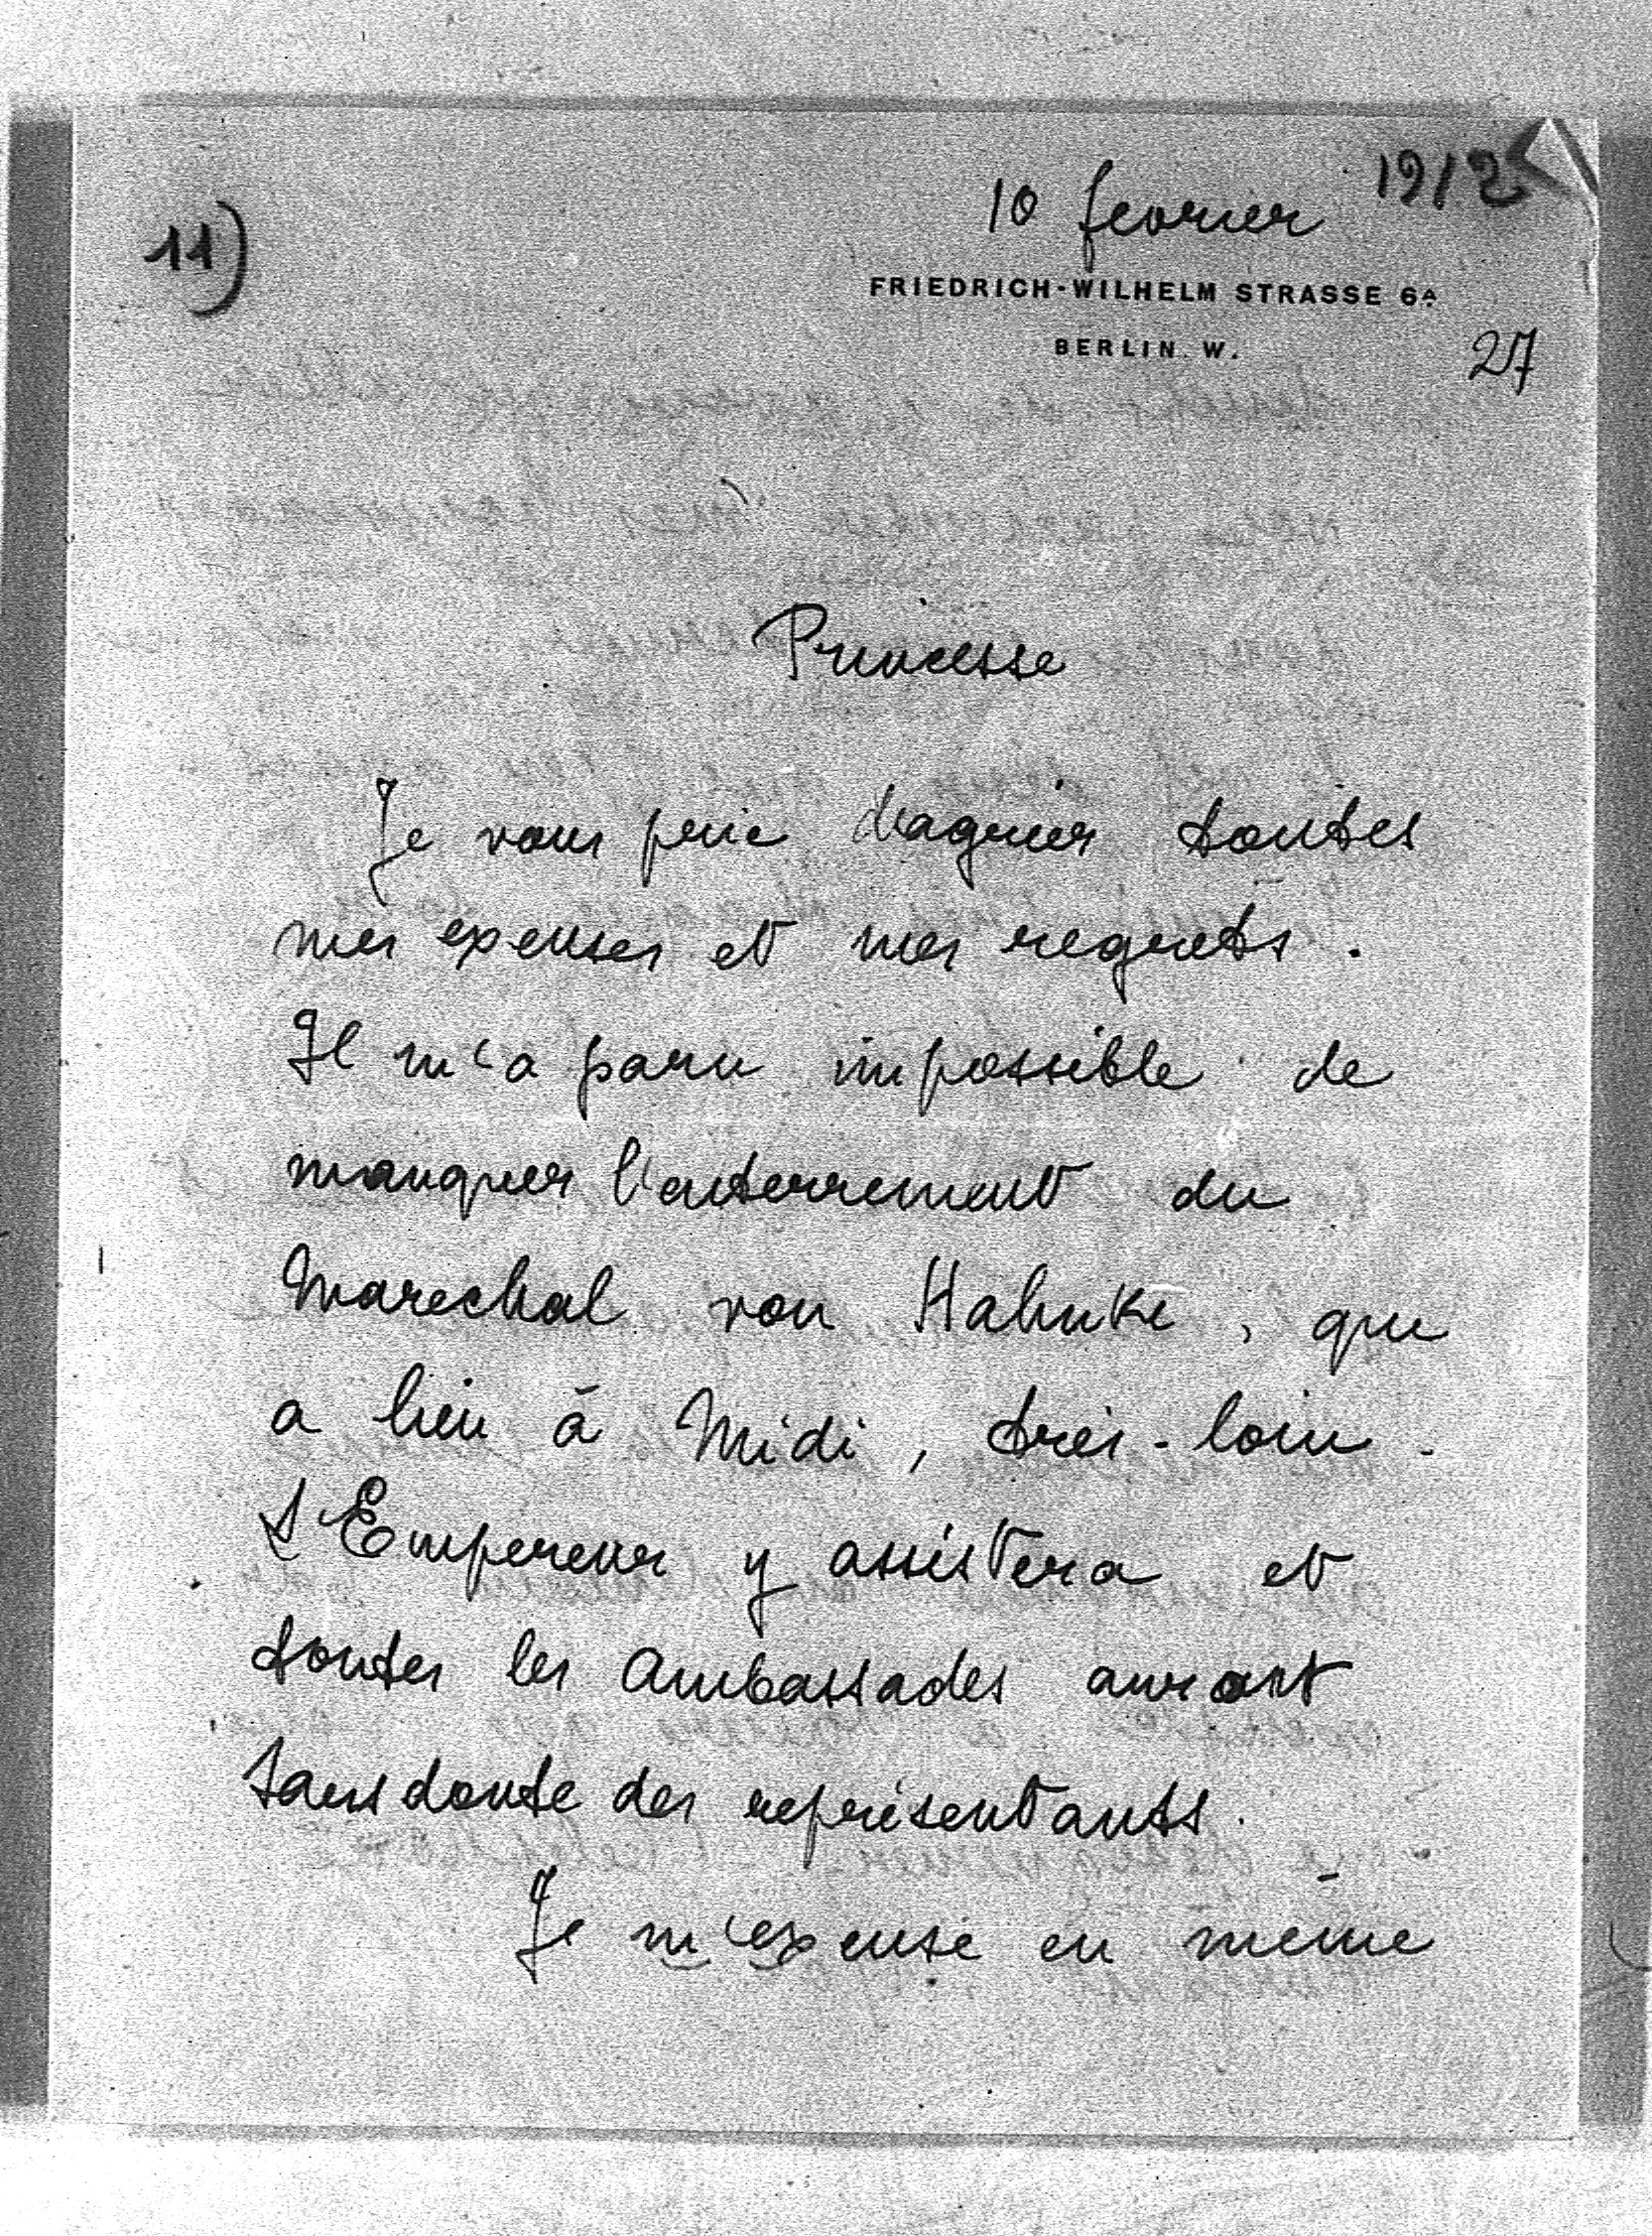 11)
10 fevrier 1912
FRIEDRICH-WILHELM STRASSE 6A
BERLIN. W.
27
Princesse
Je vous prie d'agréer toutes
mes excuses et mes regrets.
Il m'a paru impossible de
manquer l'enterrement du
Marechal von Hahnke, que
a lieu à Midi, très-loin.
L'Empereur y assistera et
toutes les Ambassades auront
sans doute des représentants.
Je m'excuse en même